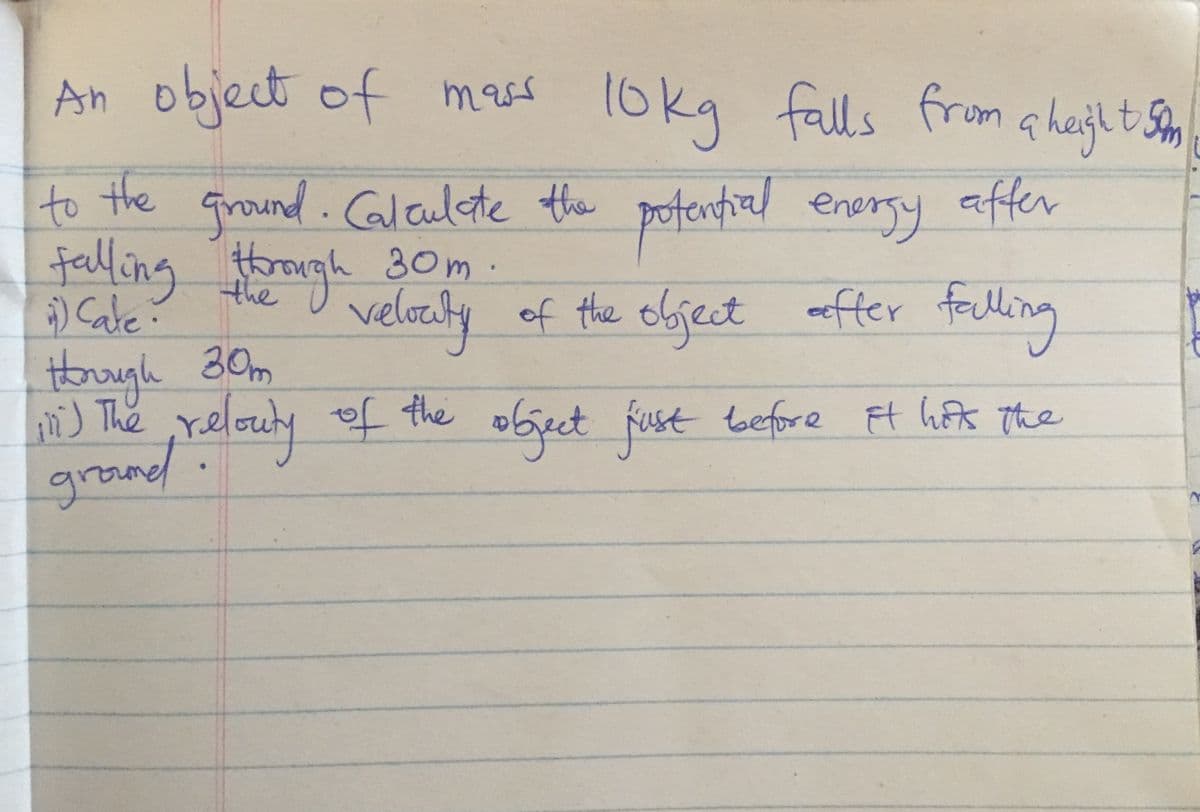 An object of mass 10kg falls from a height 50m
to the ground. Calculate the potential energy after
falling through 30m.
ii) Calc: the velocity of the object after falling
through 30m
iii) The velouty of the object just before it hits the
ground.